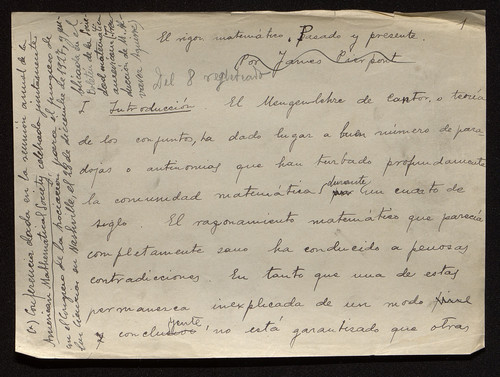 1
El rigor matemático. Pasado y presente.
Por James Pierpont
Del 8 registrado
I Introducción. El Mengenlehre de Cantor, o teoría
de los conjuntos, ha dado lugar a buen número de para-
dojas o antinomias que han turbado profundamente
la comunidad matemática durante un cuarto de
siglo. El razonamiento matemático que parecía
completamente sano ha conducido a penosas
contradicciones. En tanto que una de estas
permanezca inexplicada de un modo
concluyente, no está garantizado que otras
(*) Conferencia dada en la reunión annual de la
American Mathematical Society, celebrada juntamente
con el Congreso de la Asociación para el progreso de
las Ciencias en Nashville, el 28 de diciembre de 1927, y pu-
blicada en el
Boletín de la Socie-
dad matemática
americana (Tra-
ducción de M. H.